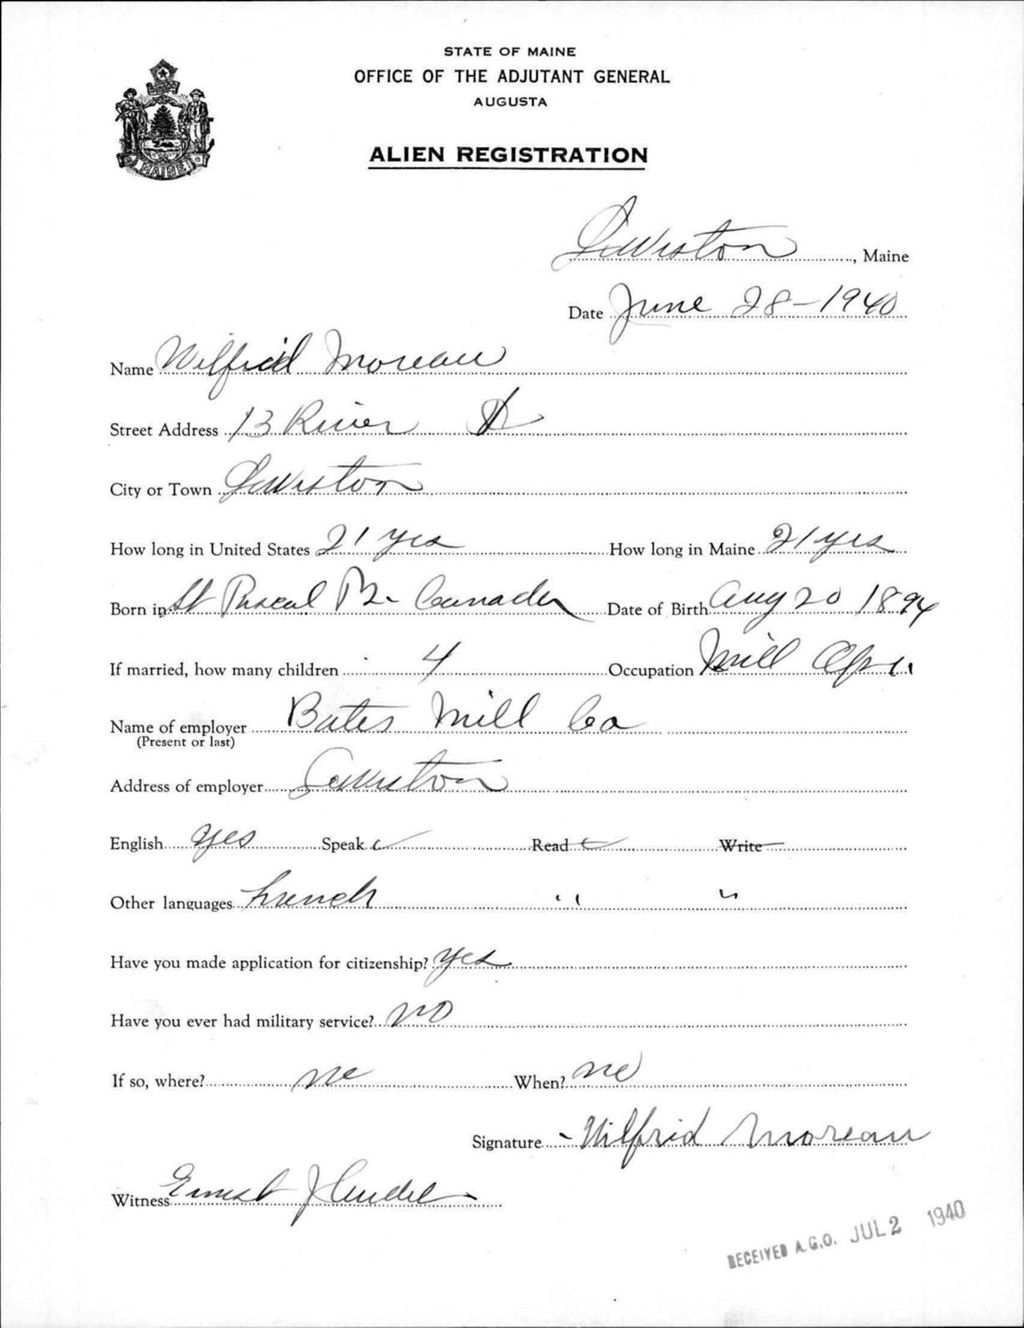 STATE OF MAINE
OFFICE OF THE ADJUTANT GENERAL
AUGUSTA
ALIEN REGISTRATION
MAINE
Lewiston, Maine
Date June 28-1940
Name Wilfrid Moreau
Street Address 13 River St
City or Town Lewiston
How long in United States 21 yrs How long in Maine 21 yrs
Born in St Pascal P2- Canada Date of Birth Aug 20 1894
If married, how many children 4 Occupation Mill
Name of employer Bates Mill Co
(Present or last)
Address of employer Lewiston
English yes Speak ✓ Read ✓ Write
Other languages French " "
Have you made application for citizenship? Yes
Have you ever had military service? no
If so, where? no When? no
Signature - Wilfrid Moreau
Witness Ernest J
RECEIVED A.G.O. JUL 2 1940